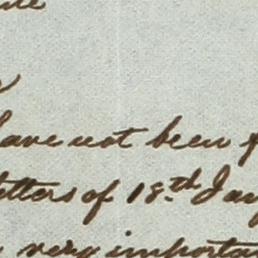 have not been
letters of 18th Jan
very importa